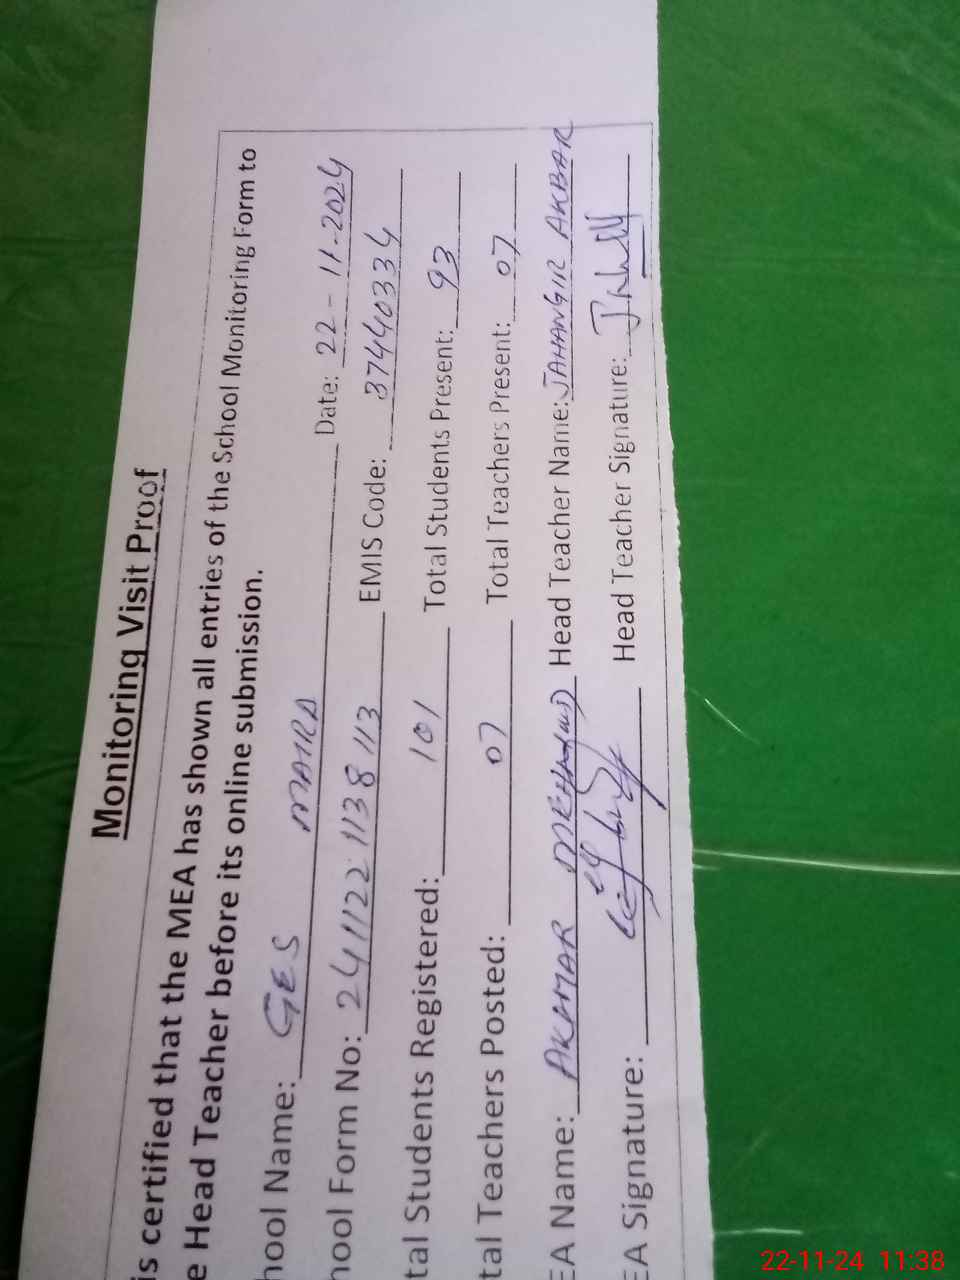 Monitoring Visit Proof
is certified that the MEA has shown all entries of the School Monitoring Form to
e Head Teacher before its online submission.
hool Name: GES MAIRA Date: 22-11-2024
hool Form No: 241122 1138 113 EMIS Code: 37440334
tal Students Registered: 101 Total Students Present: 93
tal Teachers Posted: 07 Total Teachers Present: 07
EA Name: Head Teacher Name: JAHANGIR AKBAR
EA Signature: Head Teacher Signature:
22-11-24 11:38